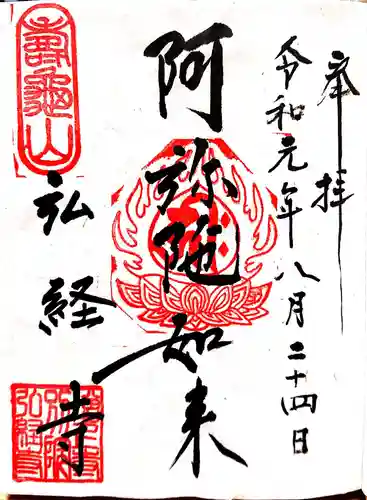 奉拝
令和元年八月二十四日
阿弥陀如来
壽龜山
弘経寺